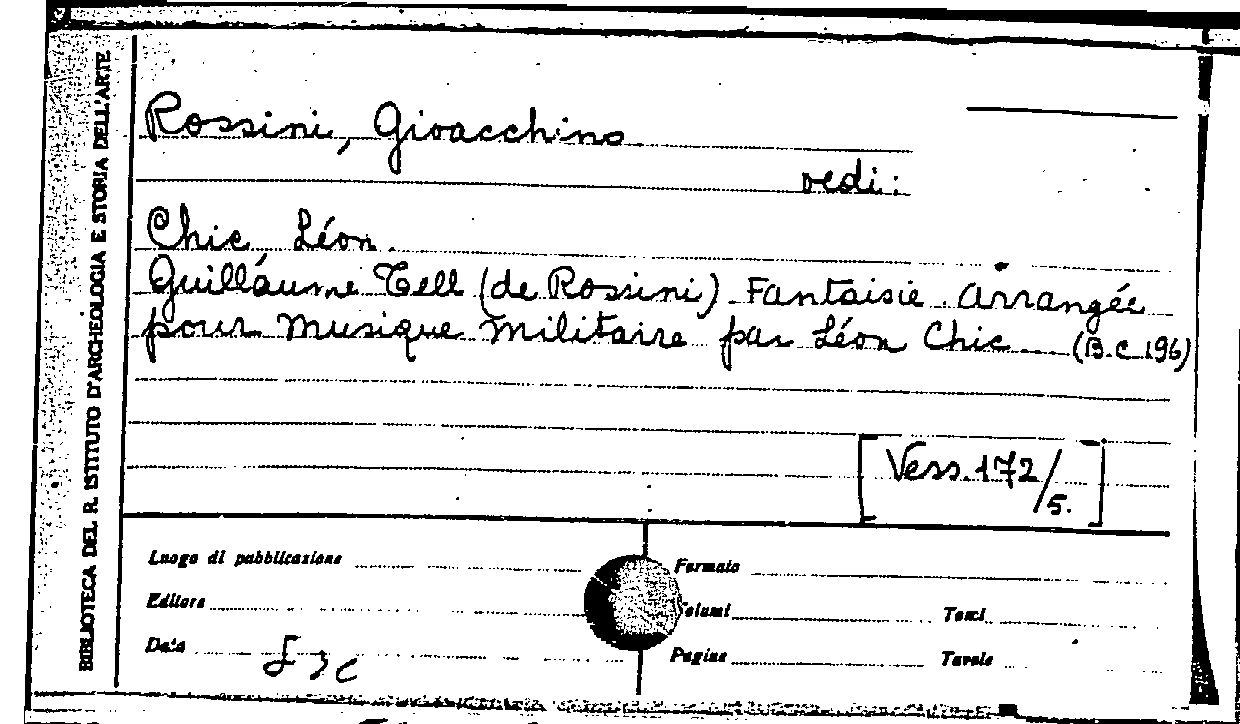 BIBLIOTECA DEL R. ISTITUTO D'ARCHEOLOGIA E STORIA DELL'ARTE
Rossini, Gioacchino
vedi:
Chic Léon.
Guillaume Tell (de Rossini) Fantaisie arrangée
pour musique militaire par Léon Chic (B.C 196)
[Vess. 172/5.]
Luogo di pubblicazione
Formato
Editore
Volumi
Tomi
Data
Pagine
Tavole